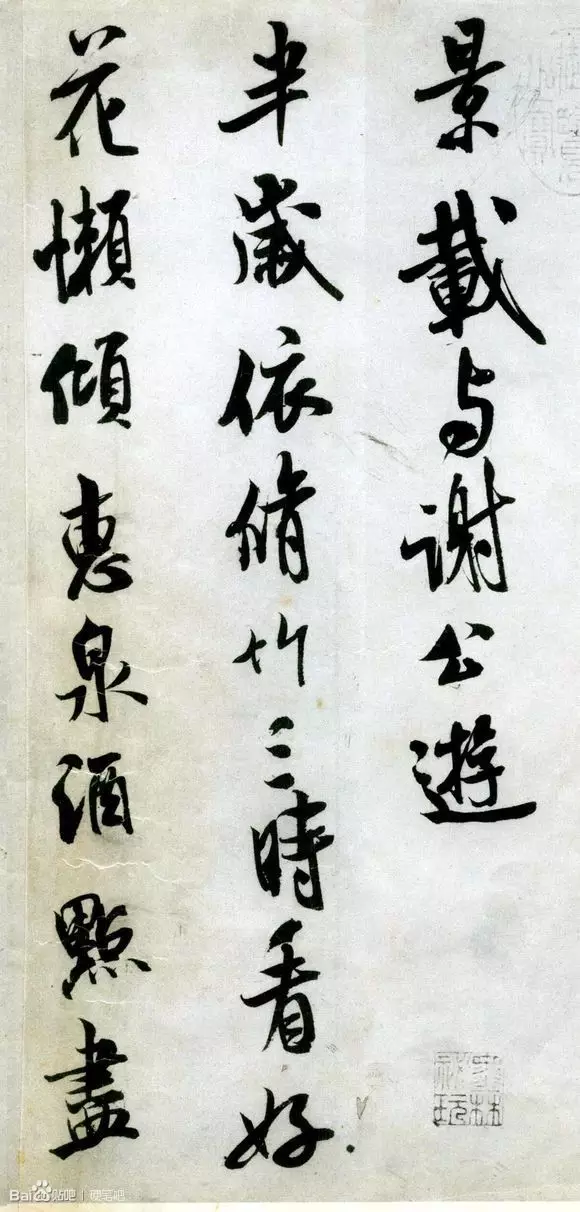 景載与謝公遊
半歲依脩竹三時看好
花懶傾惠泉酒點盡
Bai 贴吧 | 硬笔吧